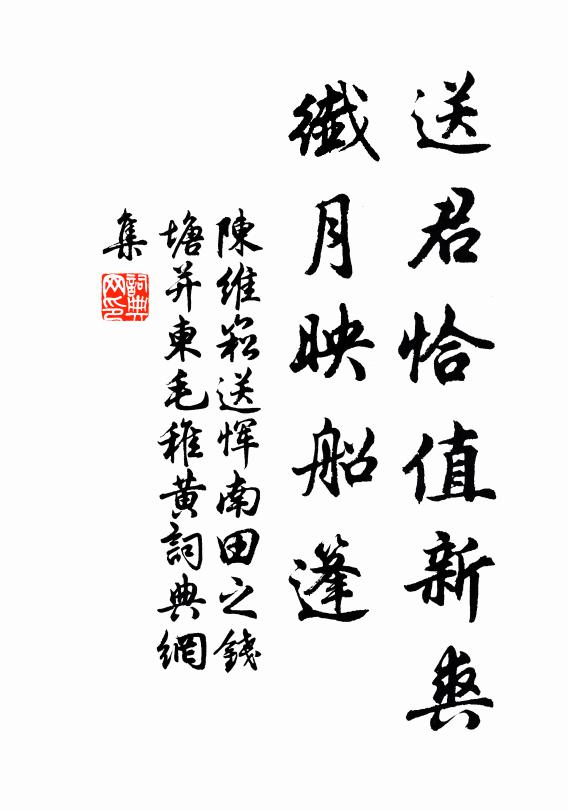 送君恰值新爽
纖月映船篷
陳維崧送惲南田之錢
塘并柬毛稚黃詞典網
集
詞典网印